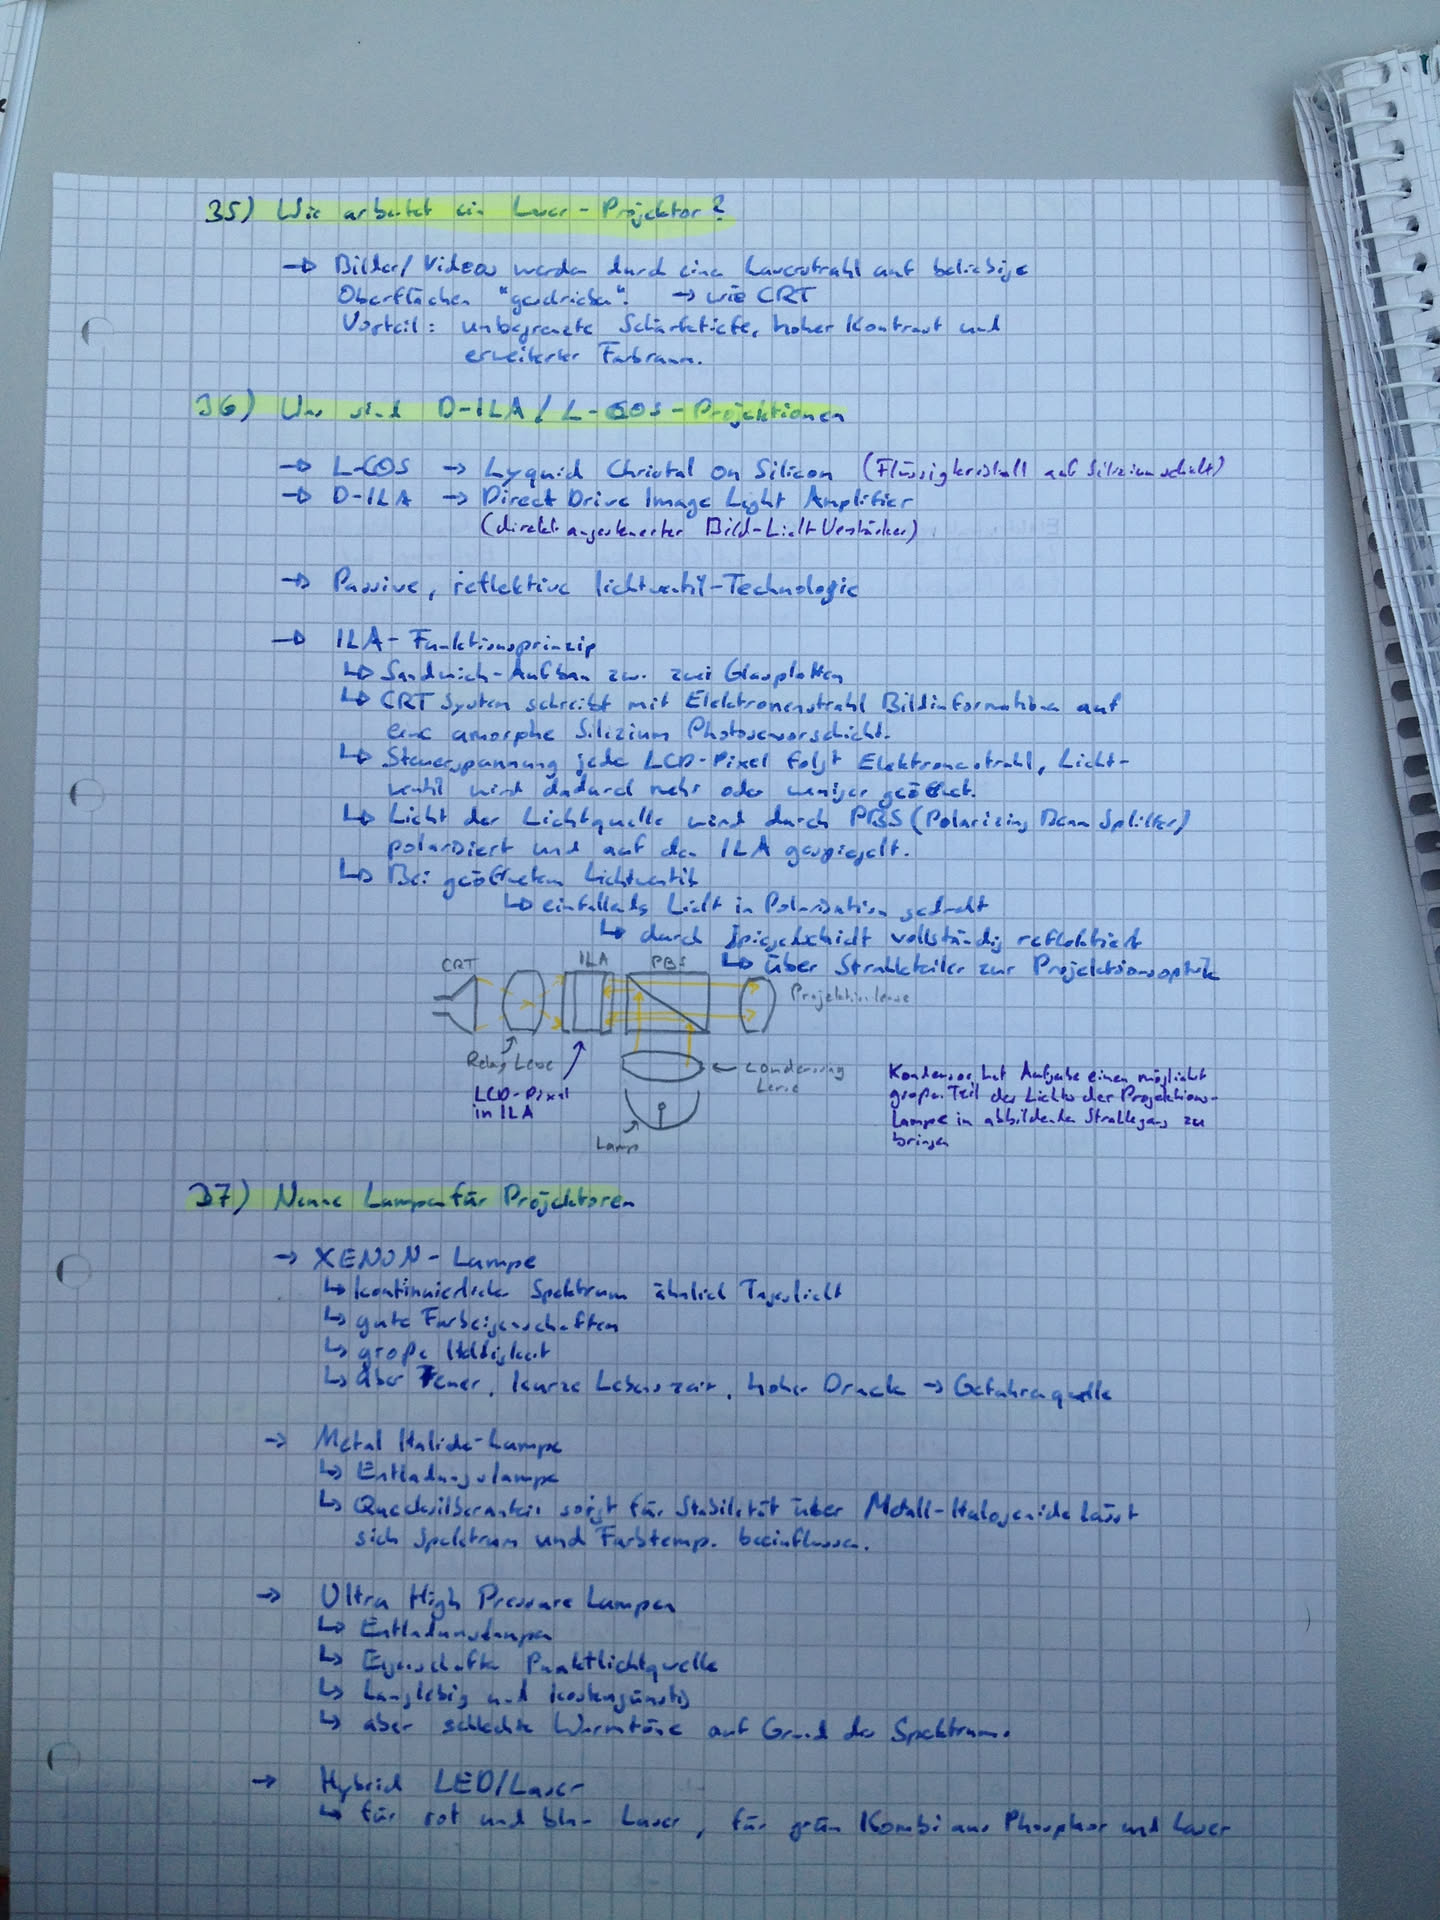 35) Wie arbeitet ein Laser-Projektor?
→ Bilder/Videos werden durch eine Laserstrahl auf beliebige
Oberflächen "geschrieben". → wie CRT
Vorteil: unbegrenzte Schärfetiefe, hoher Kontrast und
erweiterter Farbraum.
36) Was sind D-ILA/L-COS-Projektionen
→ L-COS → Lyquid Christal on Silicon (Flüssigkristall auf Siliziumschicht)
→ D-ILA → Direct Drive Image Light Amplifier
(direkt angesteuerter Bild-Licht Verstärker)
→ Passive, reflektive lichtventil-Technologie
→ ILA-Funktionsprinzip
↳ Sandwich-Aufbau zw. zwei Glasplatten
↳ CRT System schreibt mit Elektronenstrahl Bildinformation auf
eine amorphe Silizium Photosensorschicht.
↳ Steuerspannung jede LCD-Pixel folgt Elektronenstrahl, Licht-
ventil wird dadurch mehr oder weniger geöffnet.
↳ Licht der Lichtquelle wird durch PBS (Polarizing Beam Splitter)
polarisiert und auf den ILA gespiegelt.
↳ Bei geöffnetem Lichtventil
↳ einfallends Licht in Polarisation gedreht
↳ durch Spiegelschicht vollständig reflektiert
↳ über Strahlteiler zur Projektionsoptik
CRT ILA PBS
Projektionslense
Relay Lense
← Condensing
Lense
LCD-Pixel
in ILA
Lamp
Kondensor hat Aufgabe einen möglichst
großen Teil des Lichts der Projektions-
Lampe in abbildenden Strahlengang zu
bringen
37) Nenne Lampen für Projektoren
→ XENON-Lampe
↳ kontinuierliches Spektrum ähnlich Tageslicht
↳ gute Farbeigenschaften
↳ große Helligkeit
↳ aber Teuer, kurze Lebenszeit, hoher Druck → Gefahrenquelle
→ Metal Halide-Lampe
↳ Entladungslampe
↳ Quecksilberanteil sorgt für Stabilität über Metall-Halogenide lässt
sich Spektrum und Farbtemp. beeinflussen.
→ Ultra High Pressure Lampen
↳ Entladungslampen
↳ Eigenschaften Punktlichtquelle
↳ Langlebig und kostengünstig
↳ aber schlechte Warmtöne auf Grund des Spektrums.
→ Hybrid LED/Laser
↳ für rot und blau Laser, für grün Kombi aus Phosphor und Laser